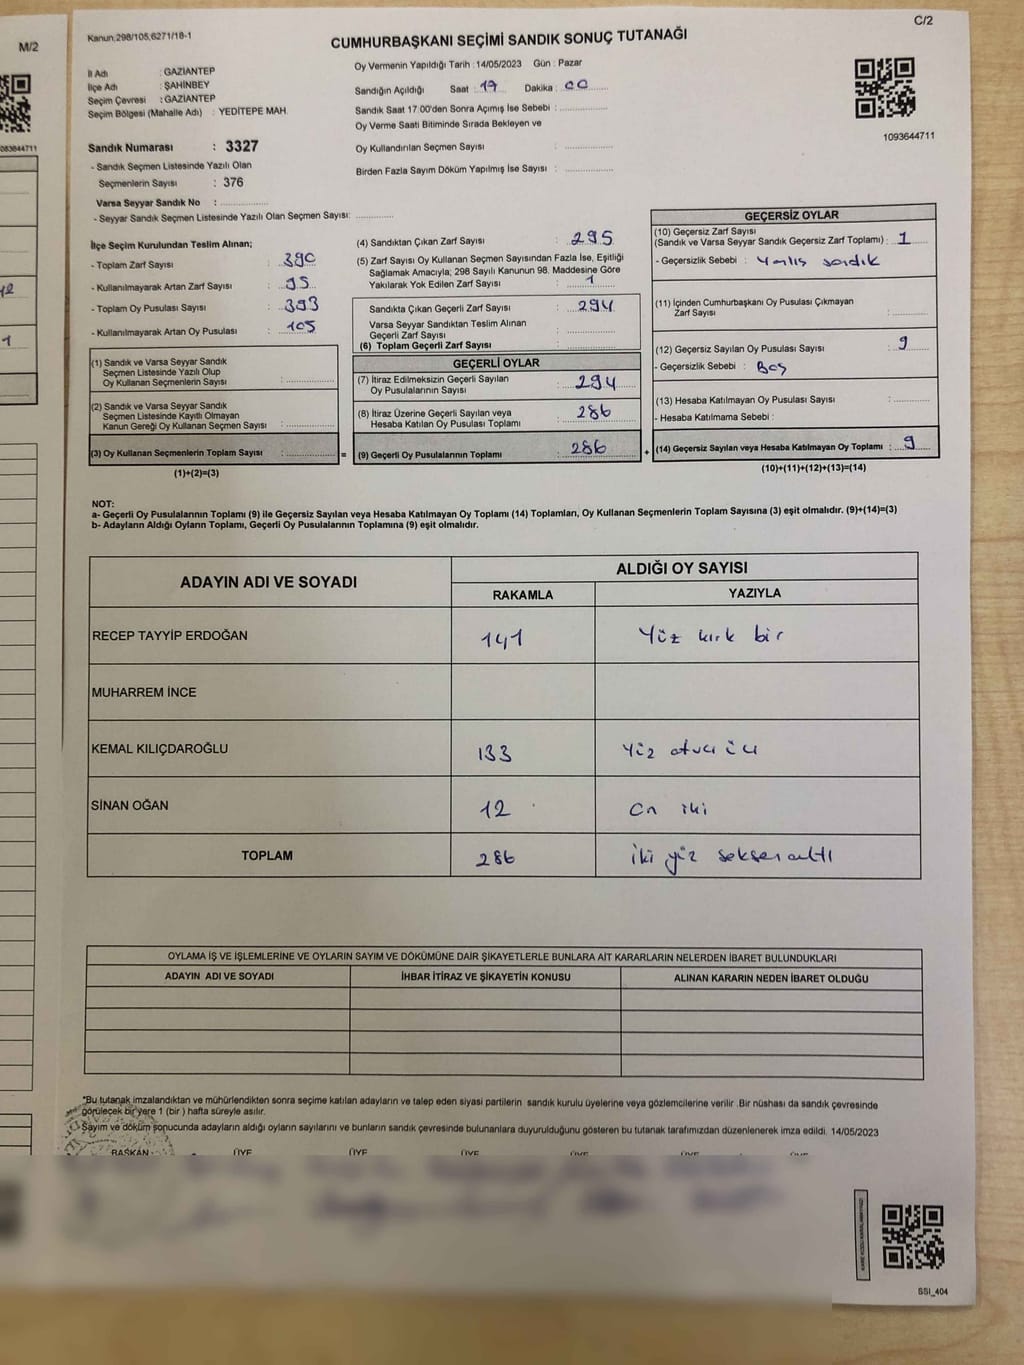 M/2
Kanun:298/105,6271/18-1
C/2
CUMHURBAŞKANI SEÇİMİ SANDIK SONUÇ TUTANAĞI
İl Adı : GAZİANTEP
İlçe Adı : ŞAHİNBEY
Seçim Çevresi : GAZİANTEP
Seçim Bölgesi (Mahalle Adı) : YEDİTEPE MAH.
Oy Vermenin Yapıldığı Tarih : 14/05/2023 Gün : Pazar
Sandığın Açıldığı Saat : 17 Dakika : 00
Sandık Saat 17:00'den Sonra Açılmış İse Sebebi :
Oy Verme Saati Bitiminde Sırada Bekleyen ve
Oy Kullandırılan Seçmen Sayısı :
Birden Fazla Sayım Döküm Yapılmış İse Sayısı :
1093644711
Sandık Numarası : 3327
- Sandık Seçmen Listesinde Yazılı Olan
Seçmenlerin Sayısı : 376
Varsa Seyyar Sandık No :
- Seyyar Sandık Seçmen Listesinde Yazılı Olan Seçmen Sayısı:
İlçe Seçim Kurulundan Teslim Alınan;
- Toplam Zarf Sayısı : 390
- Kullanılmayarak Artan Zarf Sayısı : 95
- Toplam Oy Pusulası Sayısı : 393
- Kullanılmayarak Artan Oy Pusulası : 105
(1) Sandık ve Varsa Seyyar Sandık
Seçmen Listesinde Yazılı Olup
Oy Kullanan Seçmenlerin Sayısı :
(2) Sandık ve Varsa Seyyar Sandık
Seçmen Listesinde Kayıtlı Olmayan
Kanun Gereği Oy Kullanan Seçmen Sayısı :
(3) Oy Kullanan Seçmenlerin Toplam Sayısı : =
(1)+(2)=(3)
(4) Sandıktan Çıkan Zarf Sayısı : 295
(5) Zarf Sayısı Oy Kullanan Seçmen Sayısından Fazla İse, Eşitliği
Sağlamak Amacıyla; 298 Sayılı Kanunun 98. Maddesine Göre
Yakılarak Yok Edilen Zarf Sayısı : 1
Sandıkta Çıkan Geçerli Zarf Sayısı : 294
Varsa Seyyar Sandıktan Teslim Alınan
Geçerli Zarf Sayısı :
(6) Toplam Geçerli Zarf Sayısı :
GEÇERLİ OYLAR
(7) İtiraz Edilmeksizin Geçerli Sayılan
Oy Pusulalarının Sayısı : 294
(8) İtiraz Üzerine Geçerli Sayılan veya
Hesaba Katılan Oy Pusulası Toplamı : 286
(9) Geçerli Oy Pusulalarının Toplamı : 286 +
GEÇERSİZ OYLAR
(10) Geçersiz Zarf Sayısı
(Sandık ve Varsa Seyyar Sandık Geçersiz Zarf Toplamı) : 1
- Geçersizlik Sebebi : Yanlış sandık
(11) İçinden Cumhurbaşkanı Oy Pusulası Çıkmayan
Zarf Sayısı :
(12) Geçersiz Sayılan Oy Pusulası Sayısı : 9
- Geçersizlik Sebebi : Boş
(13) Hesaba Katılmayan Oy Pusulası Sayısı :
- Hesaba Katılmama Sebebi :
(14) Geçersiz Sayılan veya Hesaba Katılmayan Oy Toplamı : 9
(10)+(11)+(12)+(13)=(14)
NOT:
a- Geçerli Oy Pusulalarının Toplamı (9) ile Geçersiz Sayılan veya Hesaba Katılmayan Oy Toplamı (14) Toplamları, Oy Kullanan Seçmenlerin Toplam Sayısına (3) eşit olmalıdır. (9)+(14)=(3)
b- Adayların Aldığı Oyların Toplamı, Geçerli Oy Pusulalarının Toplamına (9) eşit olmalıdır.
ADAYIN ADI VE SOYADI
ALDIĞI OY SAYISI
RAKAMLA YAZIYLA
RECEP TAYYİP ERDOĞAN 141 Yüz kırk bir
MUHARREM İNCE
KEMAL KILIÇDAROĞLU 133 Yüz otuz üç
SİNAN OĞAN 12 On iki
TOPLAM 286 iki yüz seksen altı
OYLAMA İŞ VE İŞLEMLERİNE VE OYLARIN SAYIM VE DÖKÜMÜNE DAİR ŞİKAYETLERLE BUNLARA AİT KARARLARIN NELERDEN İBARET BULUNDUKLARI
ADAYIN ADI VE SOYADI İHBAR İTİRAZ VE ŞİKAYETİN KONUSU ALINAN KARARIN NEDEN İBARET OLDUĞU
*Bu tutanak imzalandıktan ve mühürlendikten sonra seçime katılan adayların ve talep eden siyasi partilerin sandık kurulu üyelerine veya gözlemcilerine verilir .Bir nüshası da sandık çevresinde
görülecek bir yere 1 (bir ) hafta süreyle asılır.
Sayım ve döküm sonucunda adayların aldığı oyların sayılarını ve bunların sandık çevresinde bulunanlara duyurulduğunu gösteren bu tutanak tarafımızdan düzenlenerek imza edildi. 14/05/2023
BAŞKAN ÜYE ÜYE ÜYE ÜYE ÜYE ÜYE
SSI_404